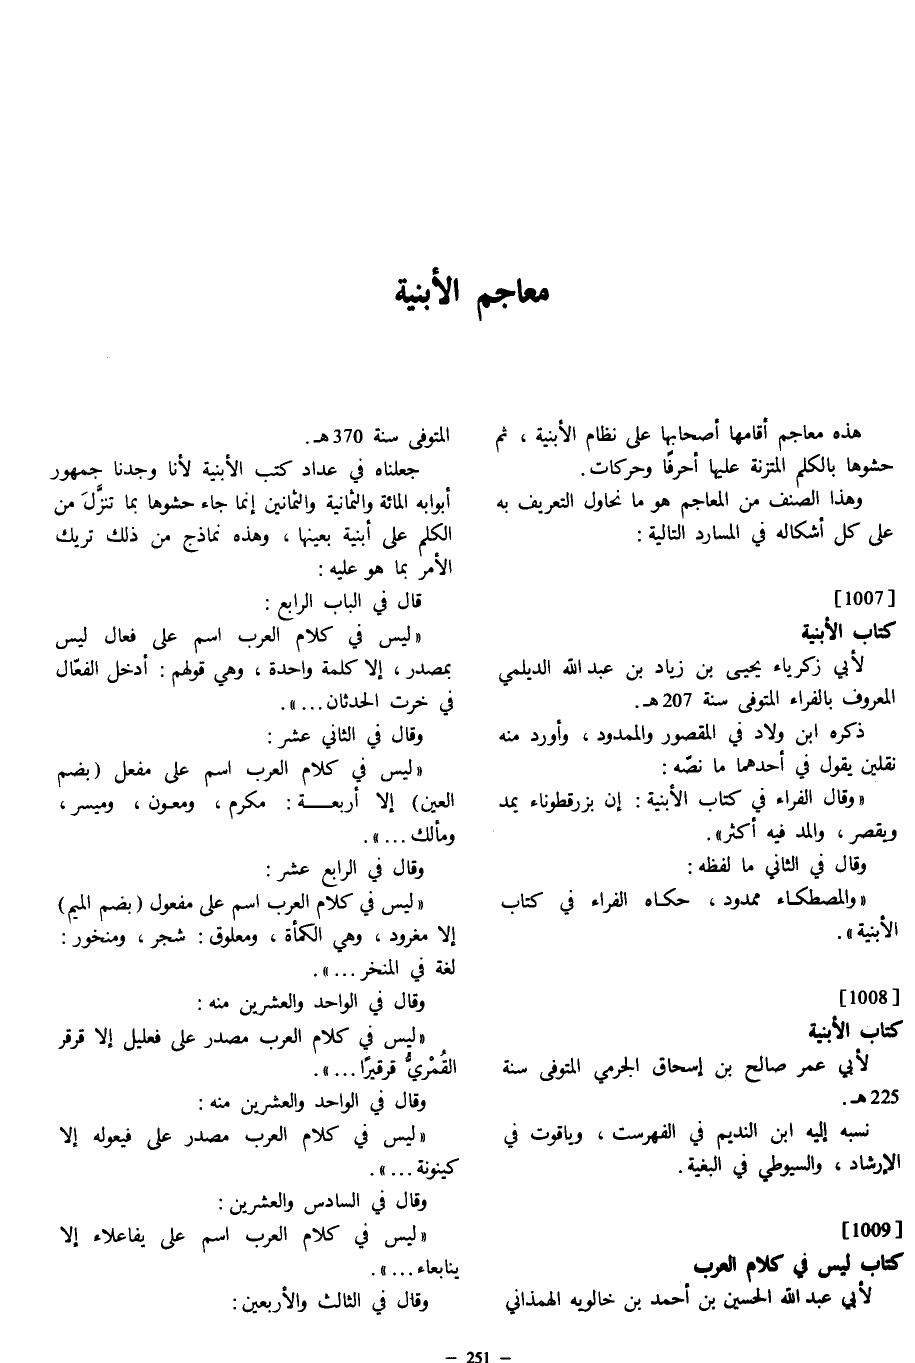 معاجم الأبنية
هذه معاجم أقامها أصحابها على نظام الأبنية ، ثم
حشوها بالكلم المتزنة عليها أحرفًا وحركات .
وهذا الصنف من المعاجم هو ما نحاول التعريف به
على كل أشكاله في المسارد التالية :
[1007]
كتاب الأبنية
لأبي زكرياء يحيى بن زياد بن عبد الله الديلمي
المعروف بالفراء المتوفى سنة 207 هـ .
ذكره ابن ولاد في المقصور والممدود ، وأورد منه
نقلين يقول في أحدهما ما نصّه :
« وقال الفراء في كتاب الأبنية : إن بزرقطوناء يمد
ويقصر ، والمد فيه أكثر » .
وقال في الثاني ما لفظه :
« والمصطكاء ممدود ، حكاه الفراء في كتاب
الأبنية » .
[1008]
كتاب الأبنية
لأبي عمر صالح بن إسحاق الجرمي المتوفى سنة
225 هـ .
نسبه إليه ابن النديم في الفهرست ، وياقوت في
الإرشاد ، والسيوطي في البغية .
[1009]
كتاب ليس في كلام العرب
لأبي عبد الله الحسين بن أحمد بن خالويه الهمذاني
المتوفى سنة 370 هـ .
جعلناه في عداد كتب الأبنية لأنا وجدنا جمهور
أبوابه المائة والثمانية والثمانين إنما جاء حشوها بما تنزَّلَ من
الكلم على أبنية بعينها ، وهذه نماذج من ذلك تريك
الأمر بما هو عليه :
قال في الباب الرابع :
« ليس في كلام العرب اسم على فعال ليس
بمصدر ، إلا كلمة واحدة ، وهي قولهم : أدخل الفعّال
في خرت الحدثان ... » .
وقال في الثاني عشر :
« ليس في كلام العرب اسم على مفعل ( بضم
العين ) إلا أربعـــة : مكرم ، ومعون ، وميسر ،
ومألك ... » .
وقال في الرابع عشر :
« ليس في كلام العرب اسم على مفعول ( بضم الميم )
إلا مغرود ، وهي الكمأة ، ومعلوق : شجر ، ومنخور :
لغة في المنخر ... » .
وقال في الواحد والعشرين منه :
« ليس في كلام العرب مصدر على فعليل إلا قرقر
القُمْريُّ قرقيرًا ... » .
وقال في الواحد والعشرين منه :
« ليس في كلام العرب مصدر على فيعوله إلا
كينونة ... » .
وقال في السادس والعشرين :
« ليس في كلام العرب اسم على يفاعلاء إلا
ينابعاء ... » .
وقال في الثالث والأربعين :
– 251 –